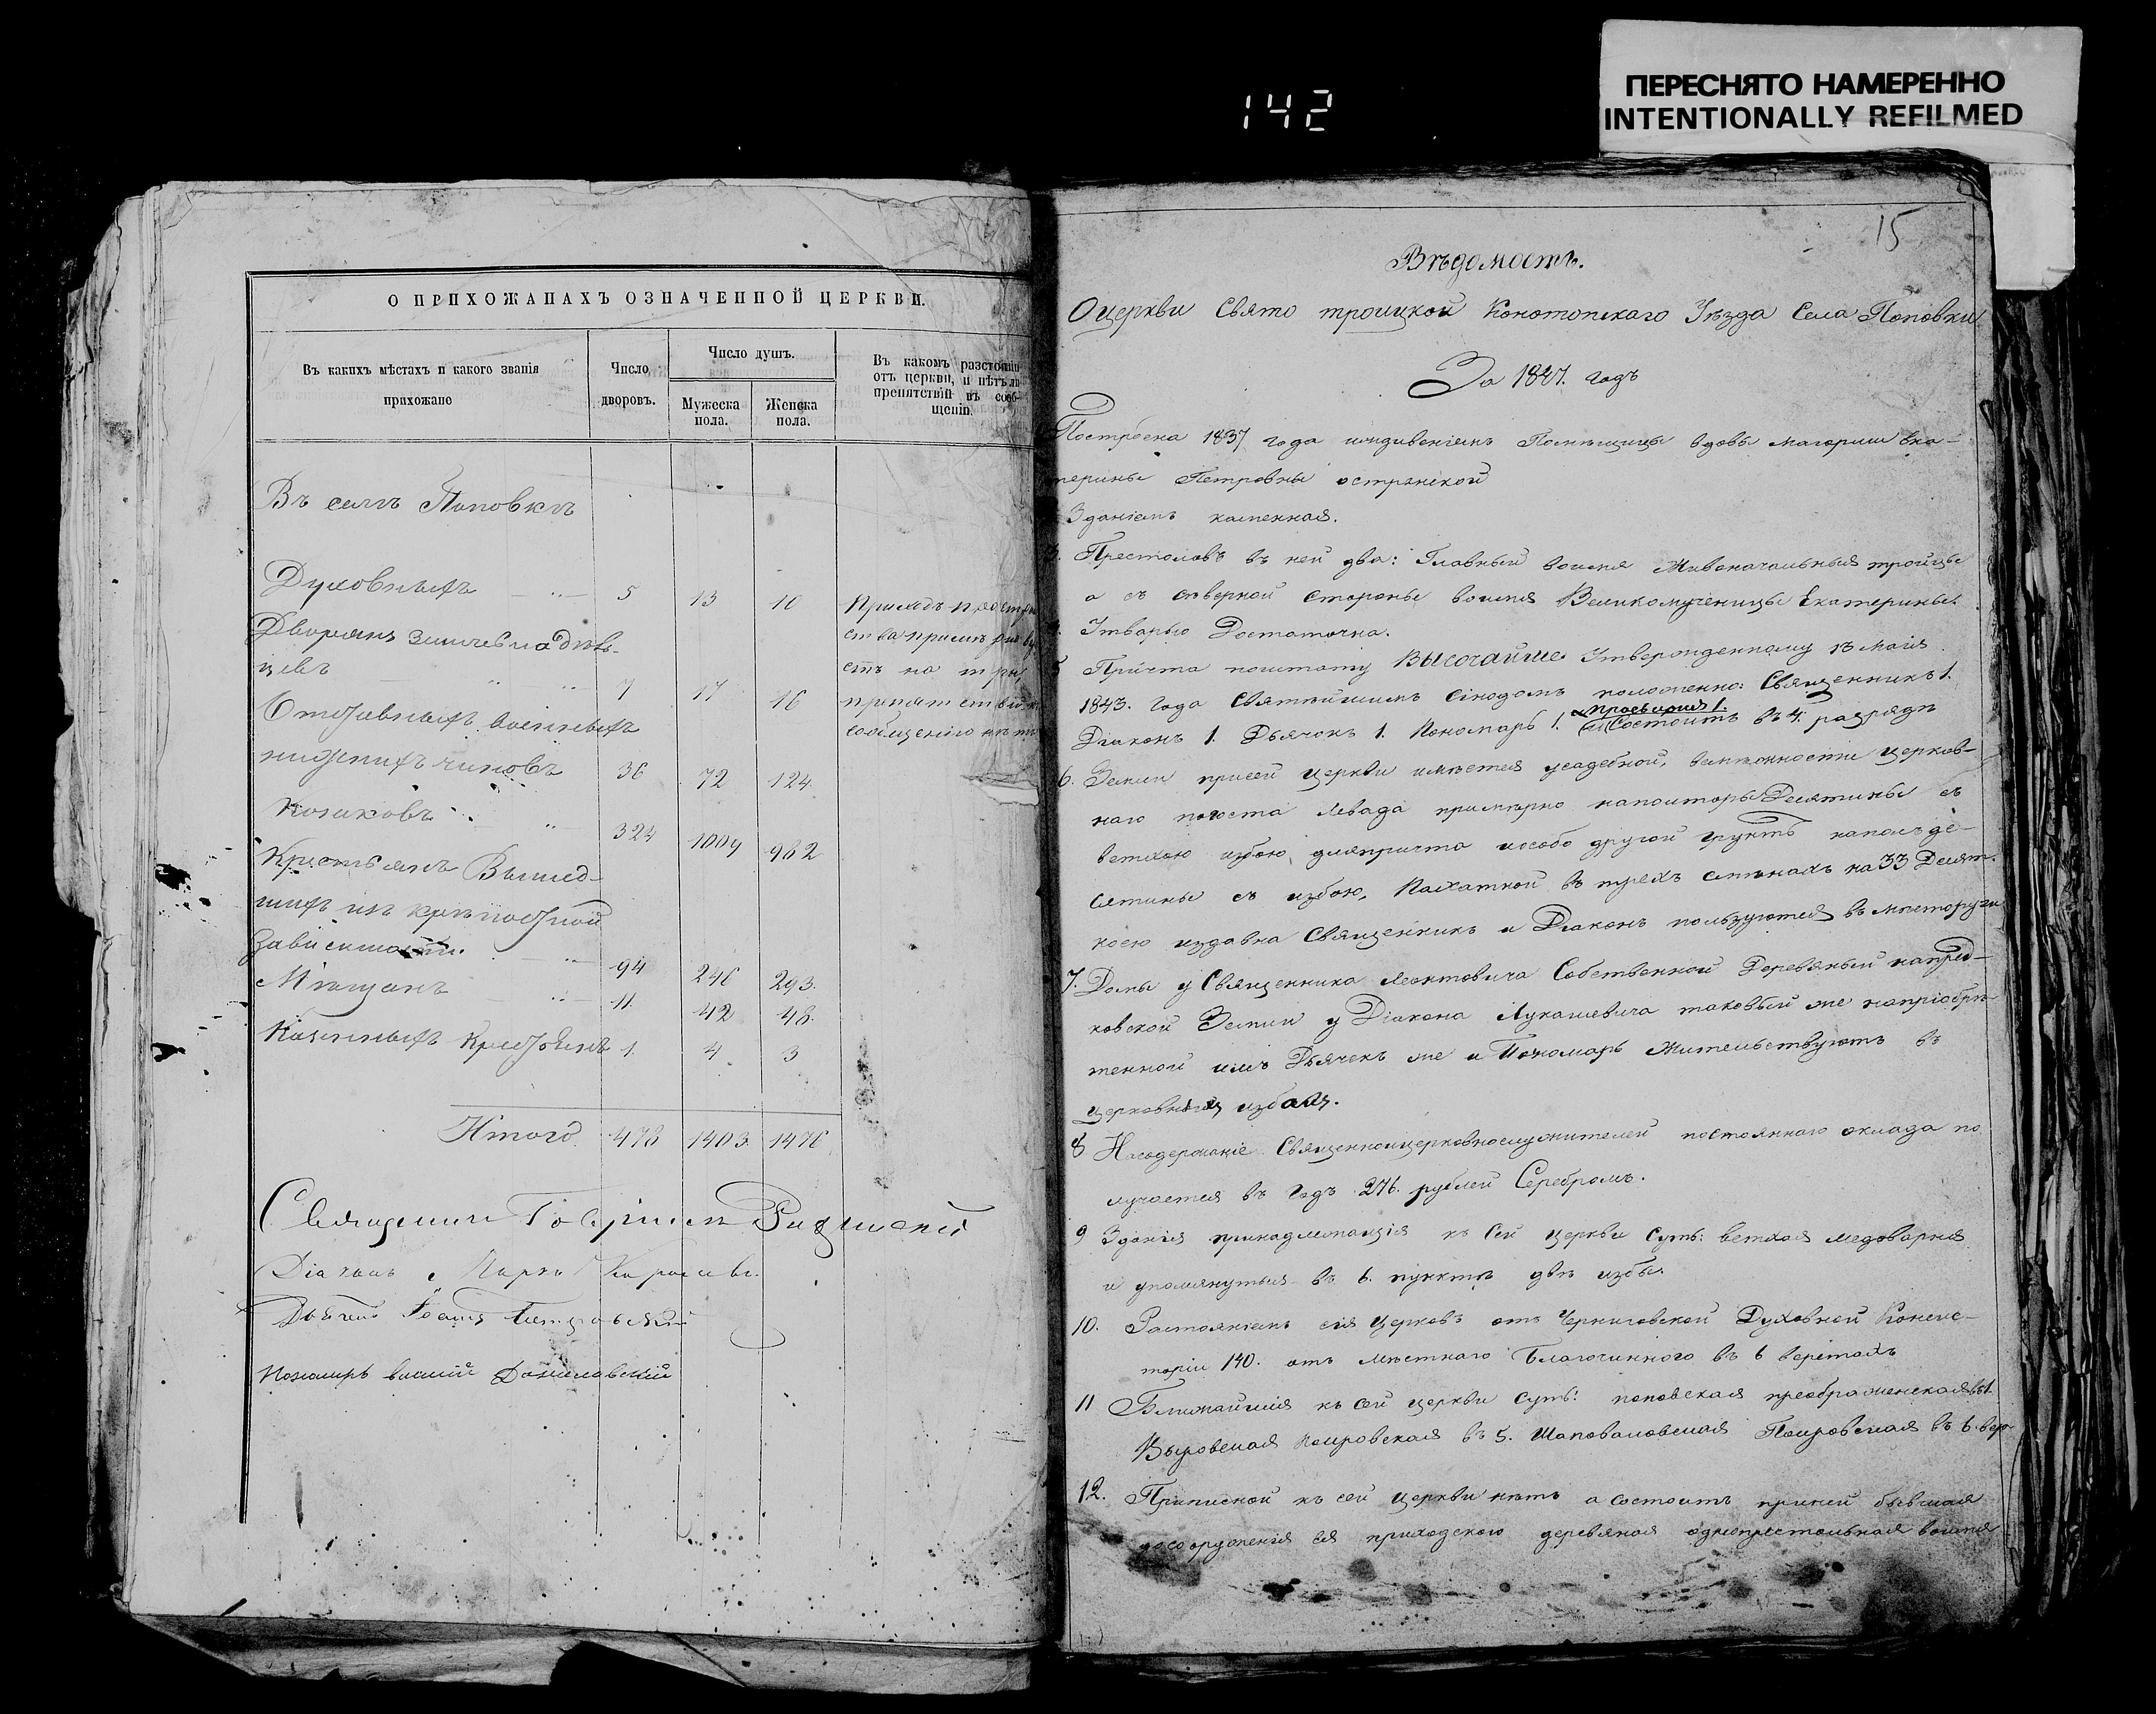 142
ПЕРЕСНЯТО НАМЕРЕННО
INTENTIONALLY REFILMED
О ПРИХОЖАНАХЪ ОЗНАЧЕННОЙ ЦЕРКВИ.
Въ какихъ мѣстахъ и какого званія прихожане
Число дворовъ.
Число душъ.
Мужеска пола.
Женска пола.
Въ какомъ разстояніи
отъ церкви, и нѣтъ ли
препятствій въ сооб-
щеніи.
Въ селѣ Поповкѣ
Духовныхъ 5 13 10
Дворянъ
7 17 16
Отставныхъ военныхъ
нижнихъ чиновъ 36 72 124
Козаковъ 324 1009 982
Крестьянъ Вышед-
шихъ изъ крѣпостной
зависимости. 94 246 293.
Мѣщанъ 11. 42 48.
Казенныхъ Крестьянъ 1. 4 3
Итого 478 1403 1476
Священник Гавриил
Діаконъ Марко
Дьячекъ
Пономарь
15
Вѣдомость.
О церкви Свято троицкой Конотопскаго Уѣзда Села Поповки
За 1847. годъ
Построена 1837 года иждивеніемъ Помѣщицы вдовы маіорши Ека-
терины Петровны острянской
Зданіемъ каменная.
3. Престоловъ въ ней два: Главный воимя Живоначальныя тройцы
а съ сѣверной стороны воимя Великомученицы Екатерины.
4. Утварью Достаточна.
5 Причта поштату Высочайше Утвержденному 13 Маія
1843. года Святѣйшимъ Сѵнодомъ положенно: Священникъ 1.
Діаконъ 1. Дьячокъ 1. Пономарь 1. Просвирня 1. Состоитъ въ 4. разрядѣ
6. Земли присей церкви имѣется усадебной, церков-
наго погоста левада примѣрно наполторы Десятины съ
ветхою избою, дляпричта иособо другой грунтъ наполъ де-
сятины съ избою, Пахатной въ трехъ смѣнахъ на 33 Десят.
коею издавна Священникъ и Діаконъ пользуются
7. Домы у Священника Леонтовича Собственной Деревяный напред-
ковской Земли у Діакона Лукашевича таковый же напріобрѣ-
тенной имъ Дьячекъ же и Пономарь жительствуютъ въ
церковныхъ избахъ.
8 Насодержаніе Священноицерковнослужителей постояннаго оклада по
лучается въ годъ 276. рублей Серебромъ.
9 Зданія принадлежащія къ Сей церкви суть: ветхая медоварня
и упомянутыя въ 6. пунктѣ двѣ избы.
10. Растояніемъ сія Церковъ отъ Черниговской Духовной Консис-
торіи 140. отъ мѣстнаго Благочиннаго въ 6 верстахъ
11 Ближайшія къ сей церкви суть: поповская преображенская въ 1.
Выровская покровская въ 5. Шаповаловская Покровская въ 6. вер
12. Приписной къ сей церкви нѣтъ а состоитъ приней бывшая
досооруженія сея приходскою деревяная однопрестольная воимя